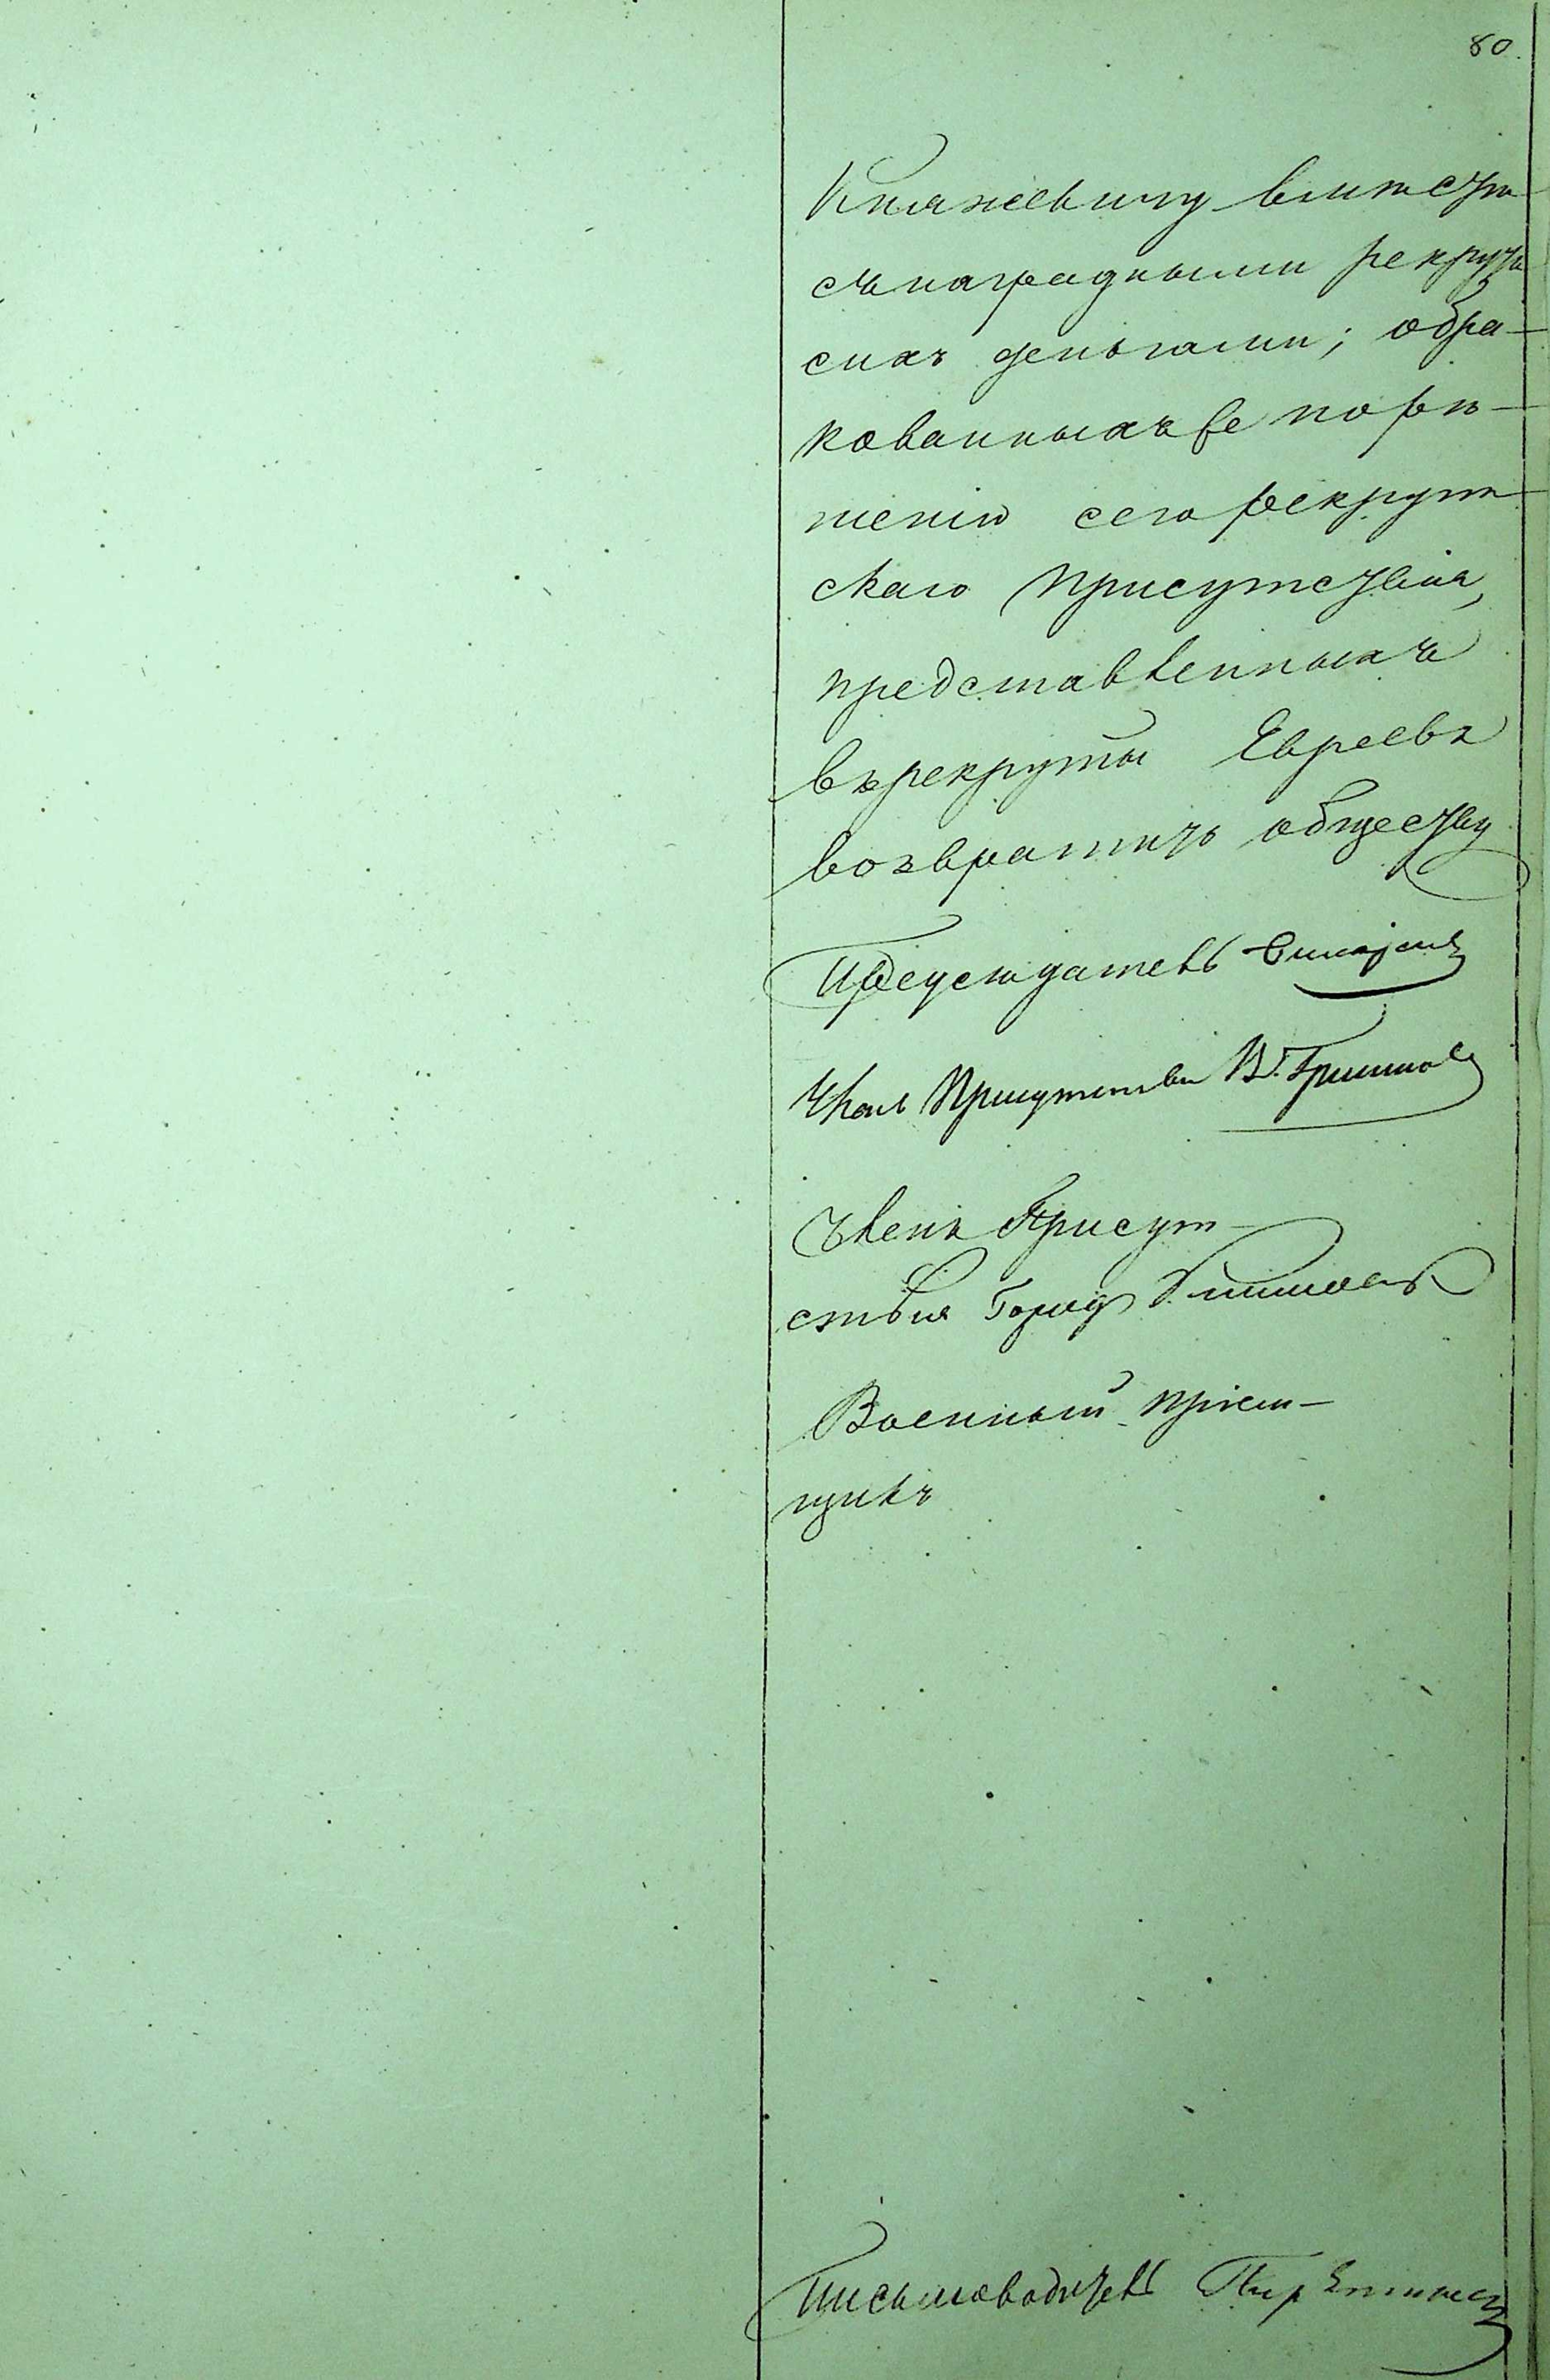 80.
Княжевичу вмѣстѣ
съ наградными рекрут
скихъ деньгами; обра-
кованныхъ же по рѣ-
шенію сего рекрут
скаго Присутствія,
представленныхъ
въ рекруты Евреевъ
возвратить обществу
Предсѣдатель
Членъ Присутствія В.
Членъ Присут-
ствія Город
Военный пріем-
щикъ
Письмоводитель